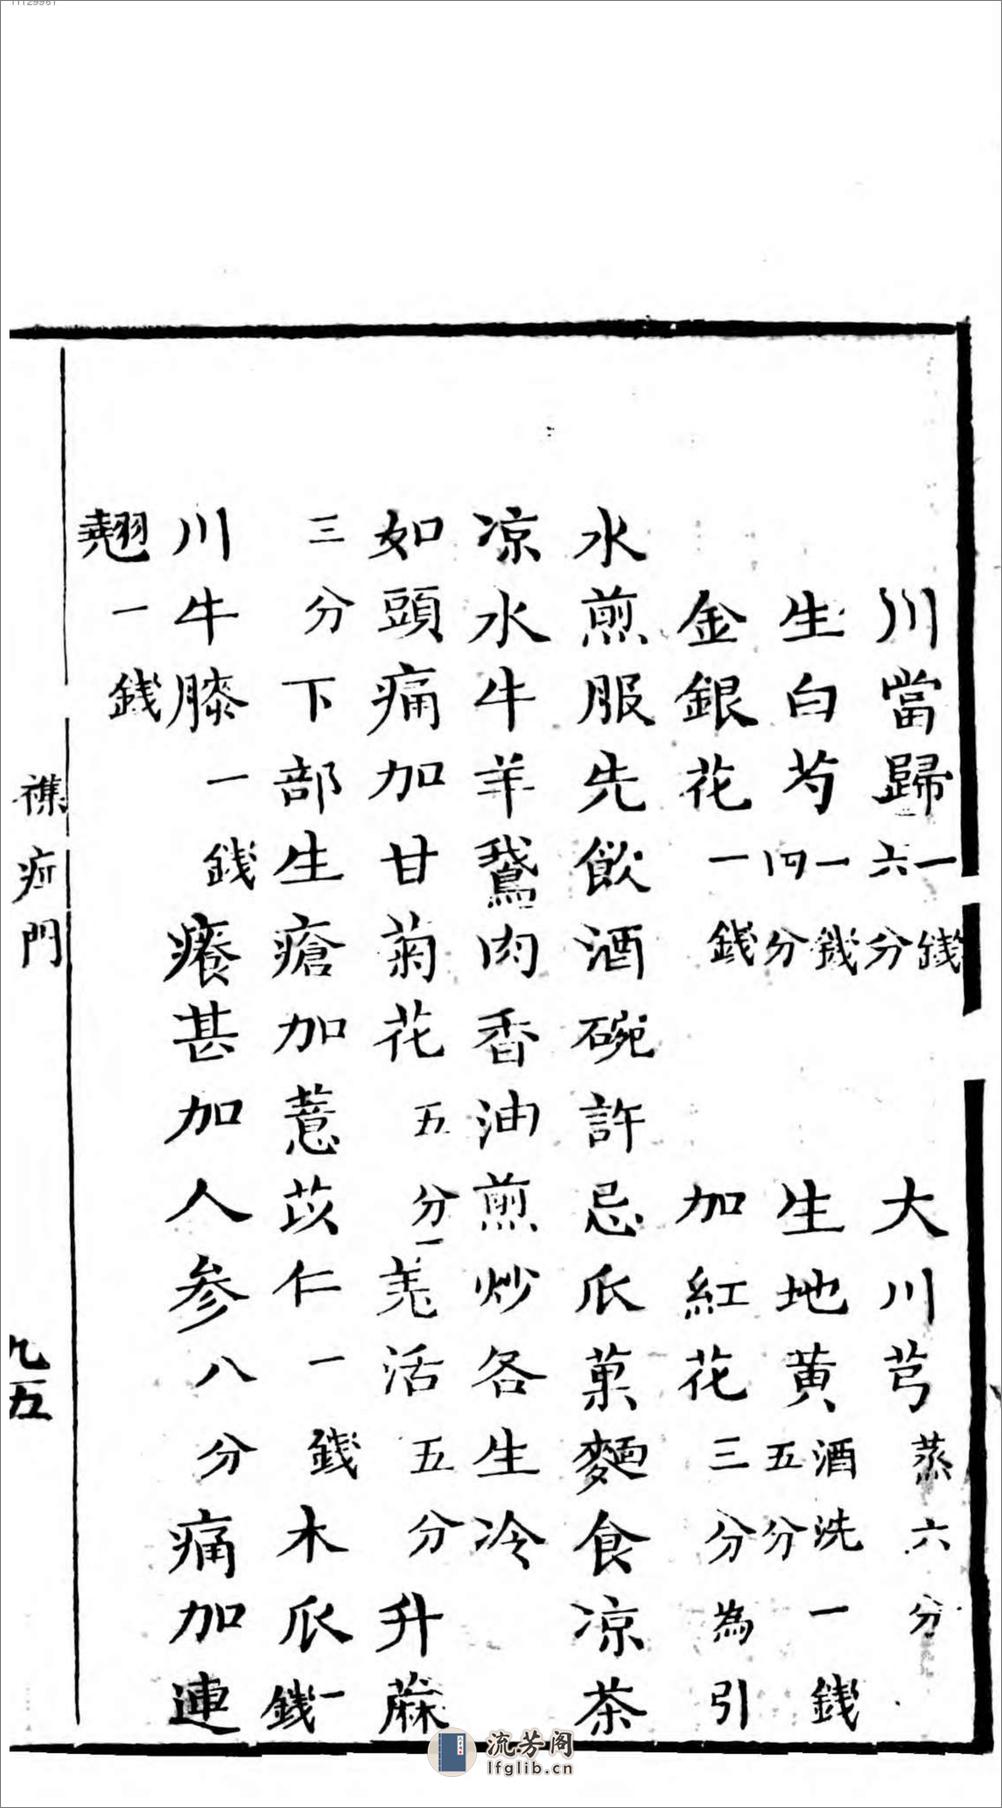 川當歸一錢六分 大川芎蒸六分
生白芍一錢四分 生地黄酒洗一錢五分
金銀花一錢 加紅花三分為引
水煎服先飲酒碗許忌瓜菓麵食凉茶
凉水牛羊鵞肉香油煎炒各生冷
如頭痛加甘菊花五分一羗活五分升蔴
三分下部生瘡加薏苡仁一錢木瓜一錢
川牛膝一錢癢甚加人参八分痛加連
翹一錢
襍症門
九五
流芳阁
lfglib.cn